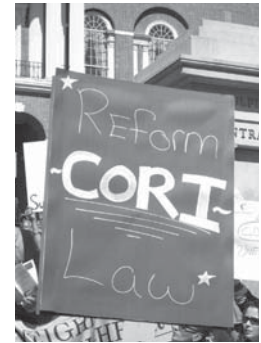 REform
~CORI~
Law